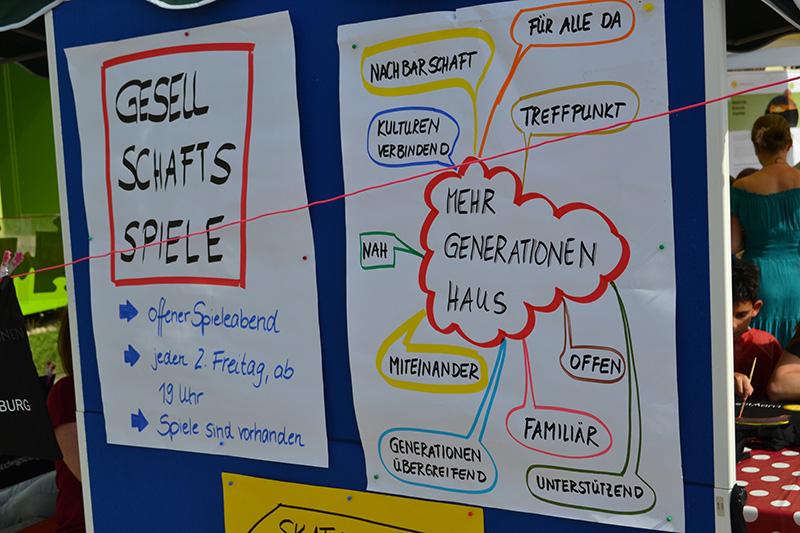 GESELL
SCHAFTS
SPIELE
offener Spieleabend
jeden 2. Freitag, ab
19 Uhr
Spiele sind vorhanden
FÜR ALLE DA
NACHBARSCHAFT
TREFFPUNKT
KULTUREN
VERBINDEND
MEHR
GENERATIONEN
HAUS
NAH
MITEINANDER
OFFEN
FAMILIÄR
GENERATIONEN
ÜBERGREIFEND
UNTERSTÜTZEND
BURG